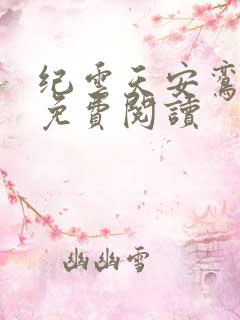 纪云天安鸾
免費閱讀
幽幽雪